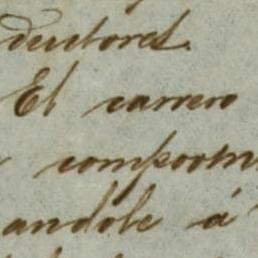 ductores.
El carrero
comportm
andole á